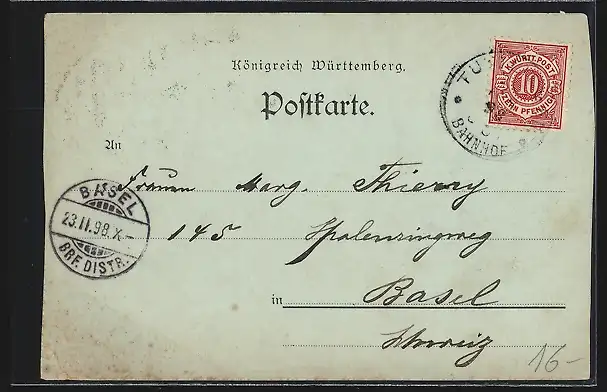 Königreich Württemberg.
Postkarte.
K. WÜRTT. POST
10
ZEHN PFENNIG
TU
BAHNHOF
An
Frauen Marg. Thierry
BASEL
23.II.98.X.-
BRF. DISTR.
145 Spalenringweg
in Basel
Schweiz
16-